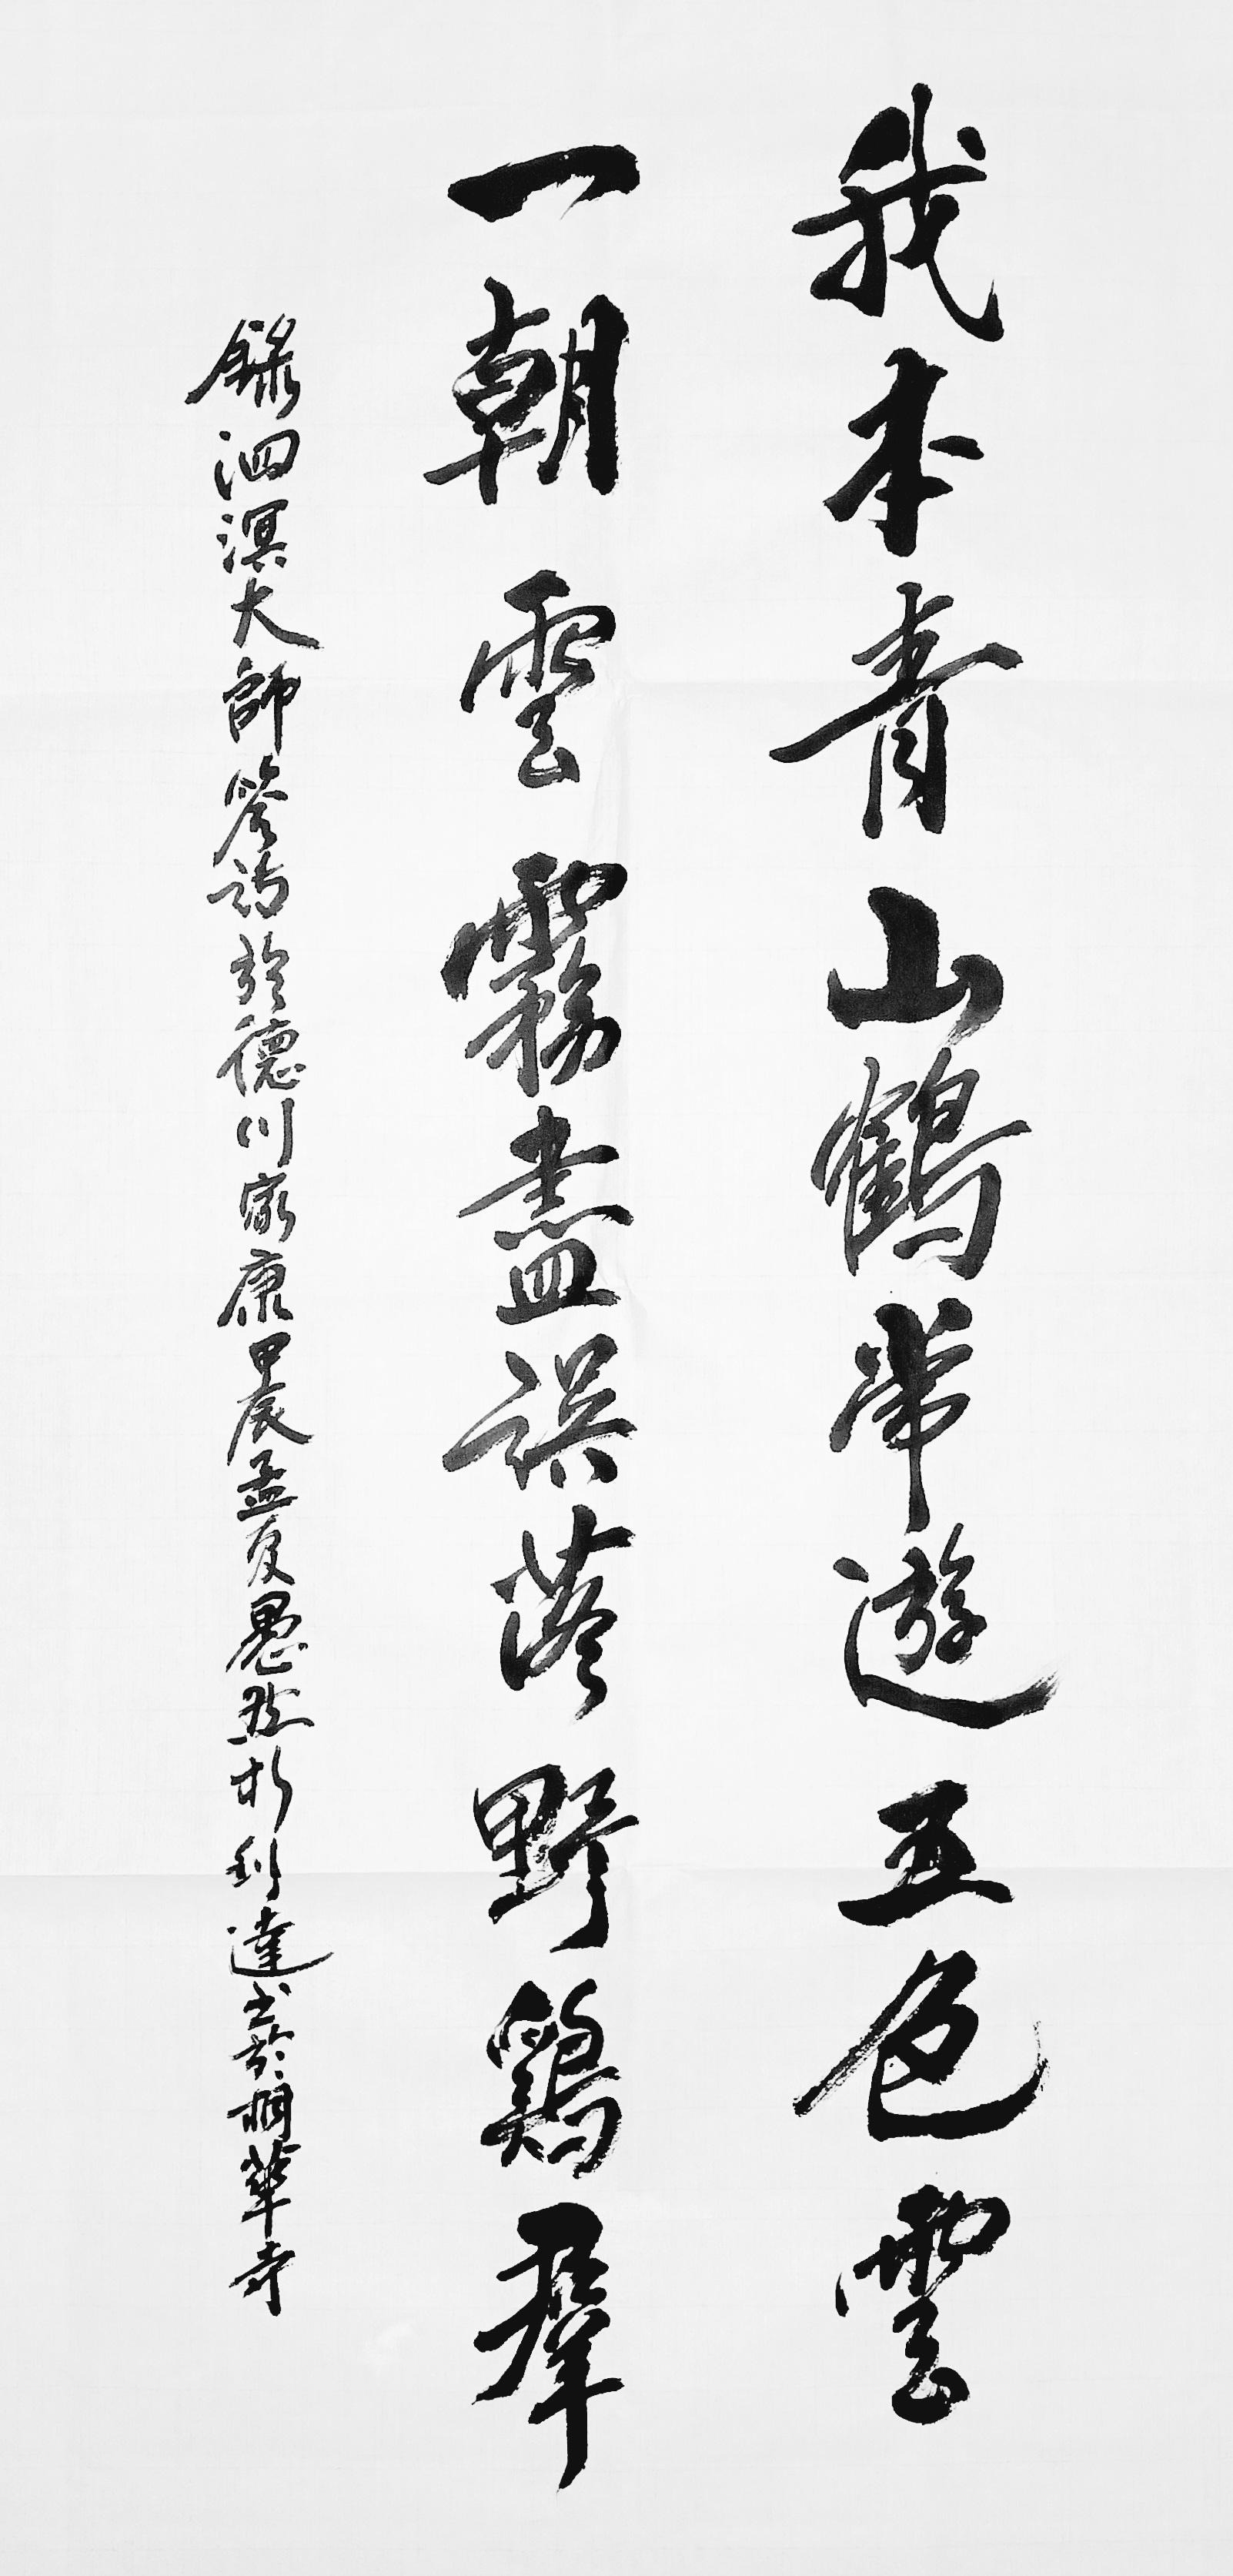 我本青山鶴常遊五色雲
一朝雲霧盡誤落野鷄群
錄泗溟大師答詩於德川家康甲辰孟夏愚然朴利達書於桐華寺